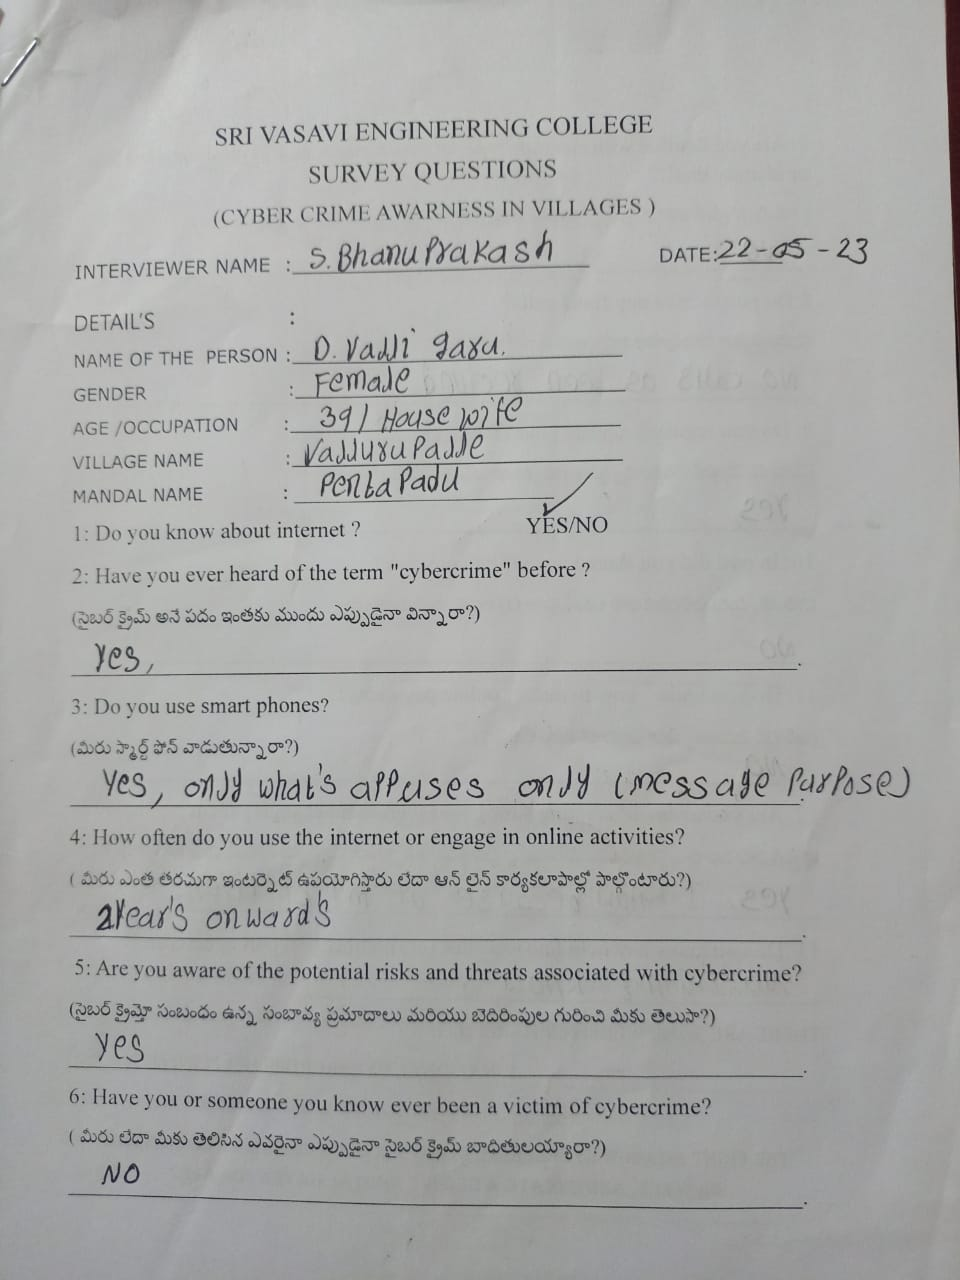 SRI VASAVI ENGINEERING COLLEGE
SURVEY QUESTIONS
(CYBER CRIME AWARNESS IN VILLAGES )
INTERVIEWER NAME : S. Bhanu Prakash DATE: 22-05-23
DETAIL'S :
NAME OF THE PERSON : D. Vaddi garu.
GENDER : Female
AGE /OCCUPATION : 39/ House wife
VILLAGE NAME : Vadduru Palle
MANDAL NAME : Penta Padu
1: Do you know about internet ? YES/NO
2: Have you ever heard of the term "cybercrime" before ?
(సైబర్ క్రైమ్ అనే పదం ఇంతకు ముందు ఎప్పుడైనా విన్నారా?)
Yes,
3: Do you use smart phones?
(మీరు స్మార్ట్ ఫోన్ వాడుతున్నారా?)
Yes, only what's app uses only (message purpose)
4: How often do you use the internet or engage in online activities?
( మీరు ఎంత తరచుగా ఇంటర్నెట్ ఉపయోగిస్తారు లేదా ఆన్ లైన్ కార్యకలాపాల్లో పాల్గొంటారు?)
2Year's onward's
5: Are you aware of the potential risks and threats associated with cybercrime?
(సైబర్ క్రైమ్తో సంబందం ఉన్న సంబావ్య ప్రమాదాలు మరియు బెదిరింపుల గురించి మీకు తెలుసా?)
Yes
6: Have you or someone you know ever been a victim of cybercrime?
( మీరు లేదా మీకు తెలిసిన ఎవరైనా ఎప్పుడైనా సైబర్ క్రైమ్ బాదితులయ్యారా?)
NO